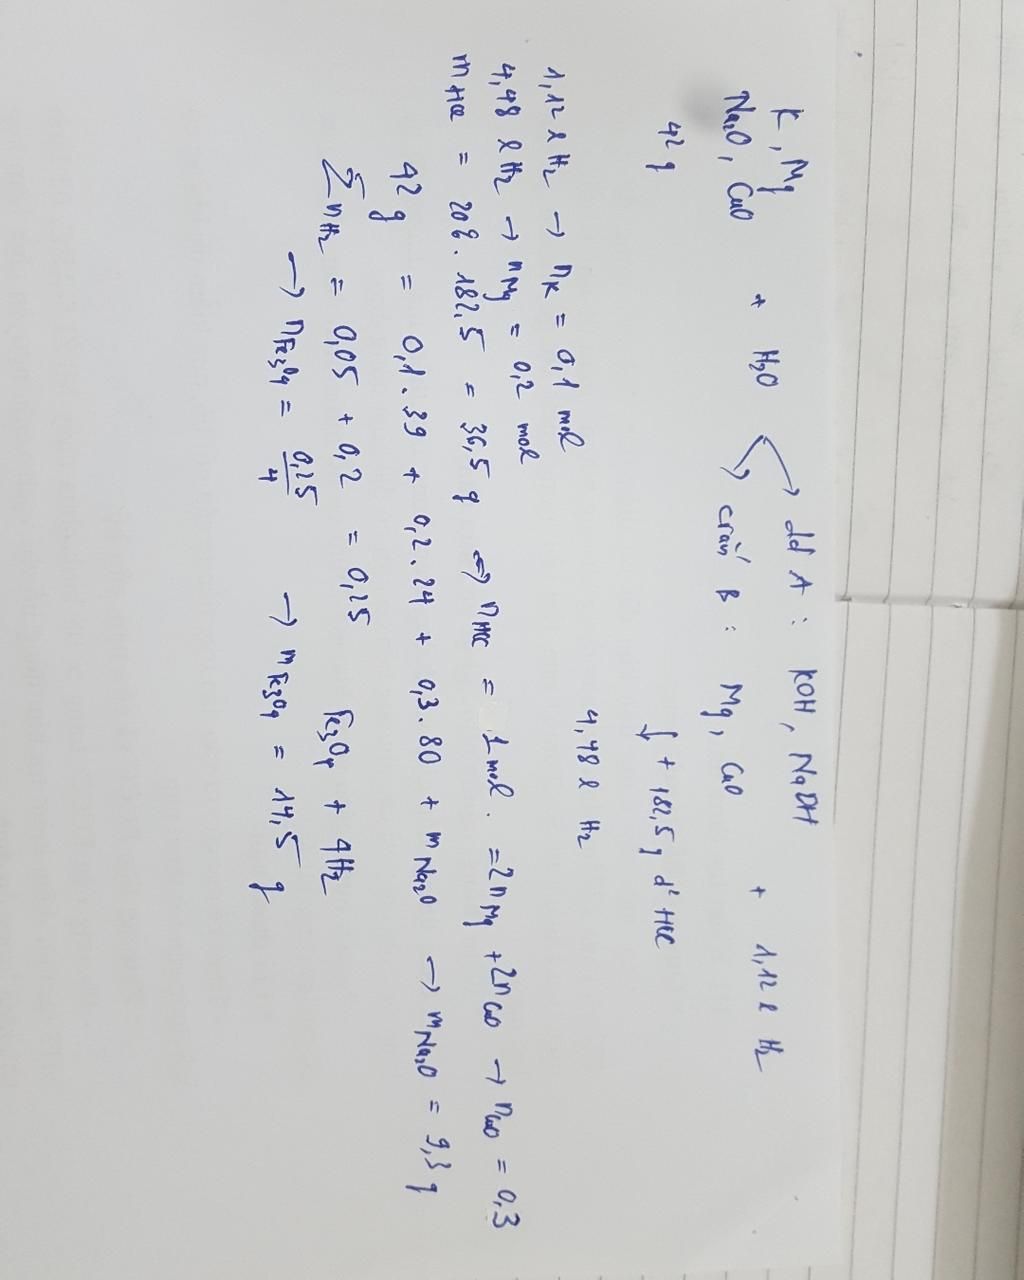 K, Mg
Na₂O, CuO + H₂O
42g
→ dd A : KOH, NaOH + 1,12 l H₂
→ crắn B : Mg, CuO
↓ + 182,5g d² HCl
4,48 l H₂
1,12 l H₂ → nK = 0,1 mol
4,48 l H₂ → nMg = 0,2 mol
mHCl = 20%. 182,5 = 36,5 g ⇒ nHCl = 1 mol. = 2nMg + 2nCuO → nCuO = 0,3
42 g = 0,1.39 + 0,2.24 + 0,3.80 + mNa₂O → mNa₂O = 9,3 g
∑nH₂ = 0,05 + 0,2 = 0,25 Fe₃O₄ + 4H₂
→ nFe₃O₄ = 0,25/4 → mFe₃O₄ = 14,5 g